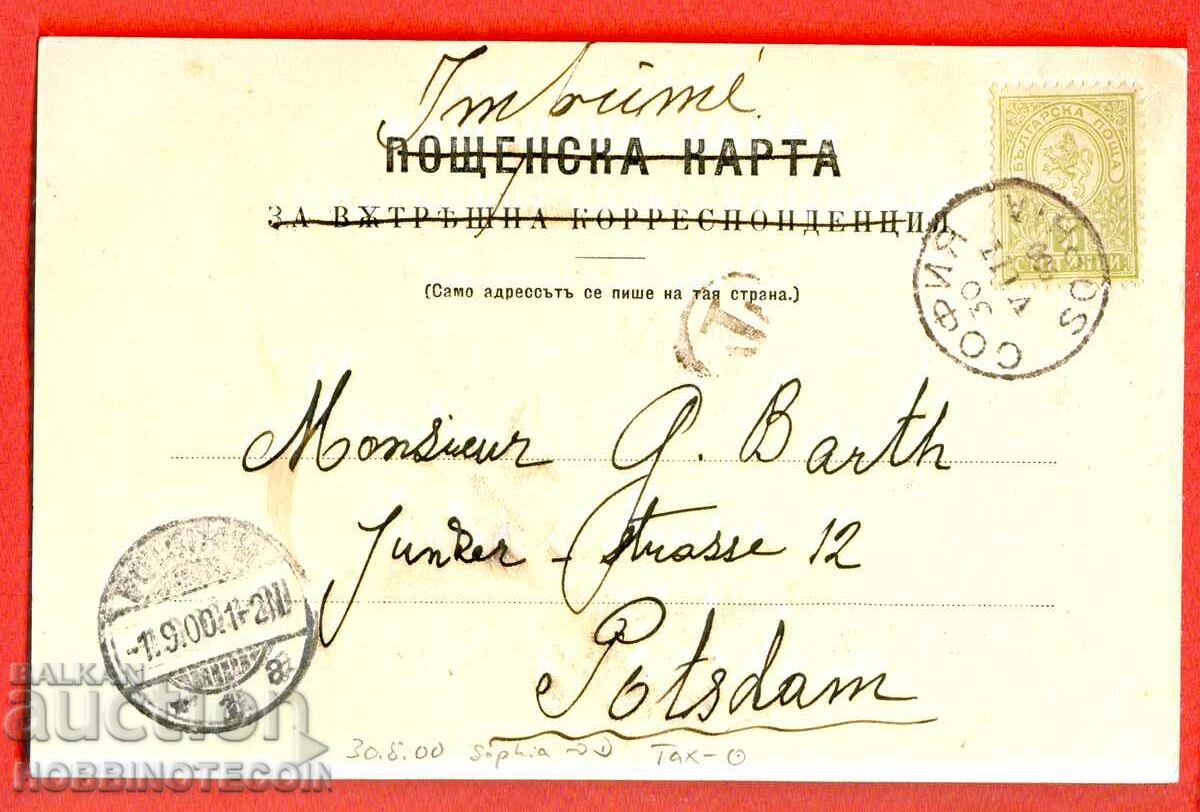 Imprimé
ПОЩЕНСКА КАРТА
ЗА ВѪТРѢШНА КОРРЕСПОНДЕНЦИЯ.
(Само адрессътъ се пише на тая страна.)
БЪЛГАРСКА ПОЩА
СОФИЯ
SOFIA
30
VIII
T
Monsieur G. Barth
Junker-Strasse 12
Potsdam
-1.9.00.1-2N
30.8.00 Sophia → D Tax-0
BALKAN
auction
HOBBINOTECOIN